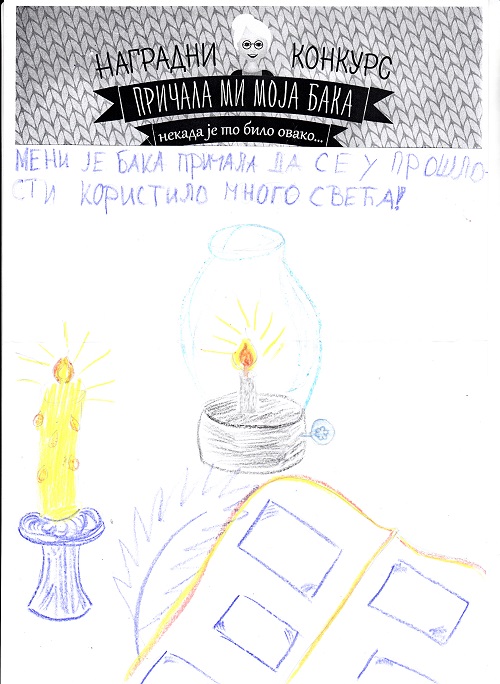 НАГРАДНИ КОНКУРС
ПРИЧАЛА МИ МОЈА БАКА
некада је то било овако...
МЕНИ ЈЕ БАКА ПРИЧАЛА ДА СЕ У ПРОШЛО-
СТИ КОРИСТИЛО МНОГО СВЕЋА!